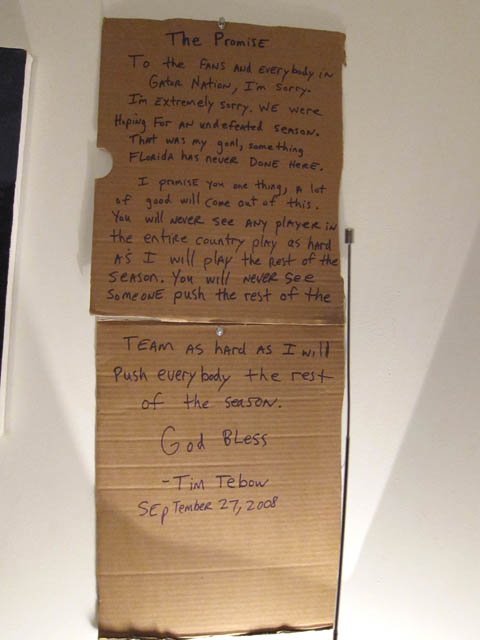 The Promise
To the Fans and everybody in
Gator Nation, I'm sorry.
I'm extremely sorry. We were
Hoping For an undefeated season.
That was my goal, something
Florida has never Done Here.
I promise you one thing, a lot
of good will come out of this.
You will never see any player in
the entire country play as hard
as I will play the rest of the
season. You will never see
someone push the rest of the
Team as hard as I will
Push everybody the rest
of the season.
God Bless
-Tim Tebow
September 27, 2008